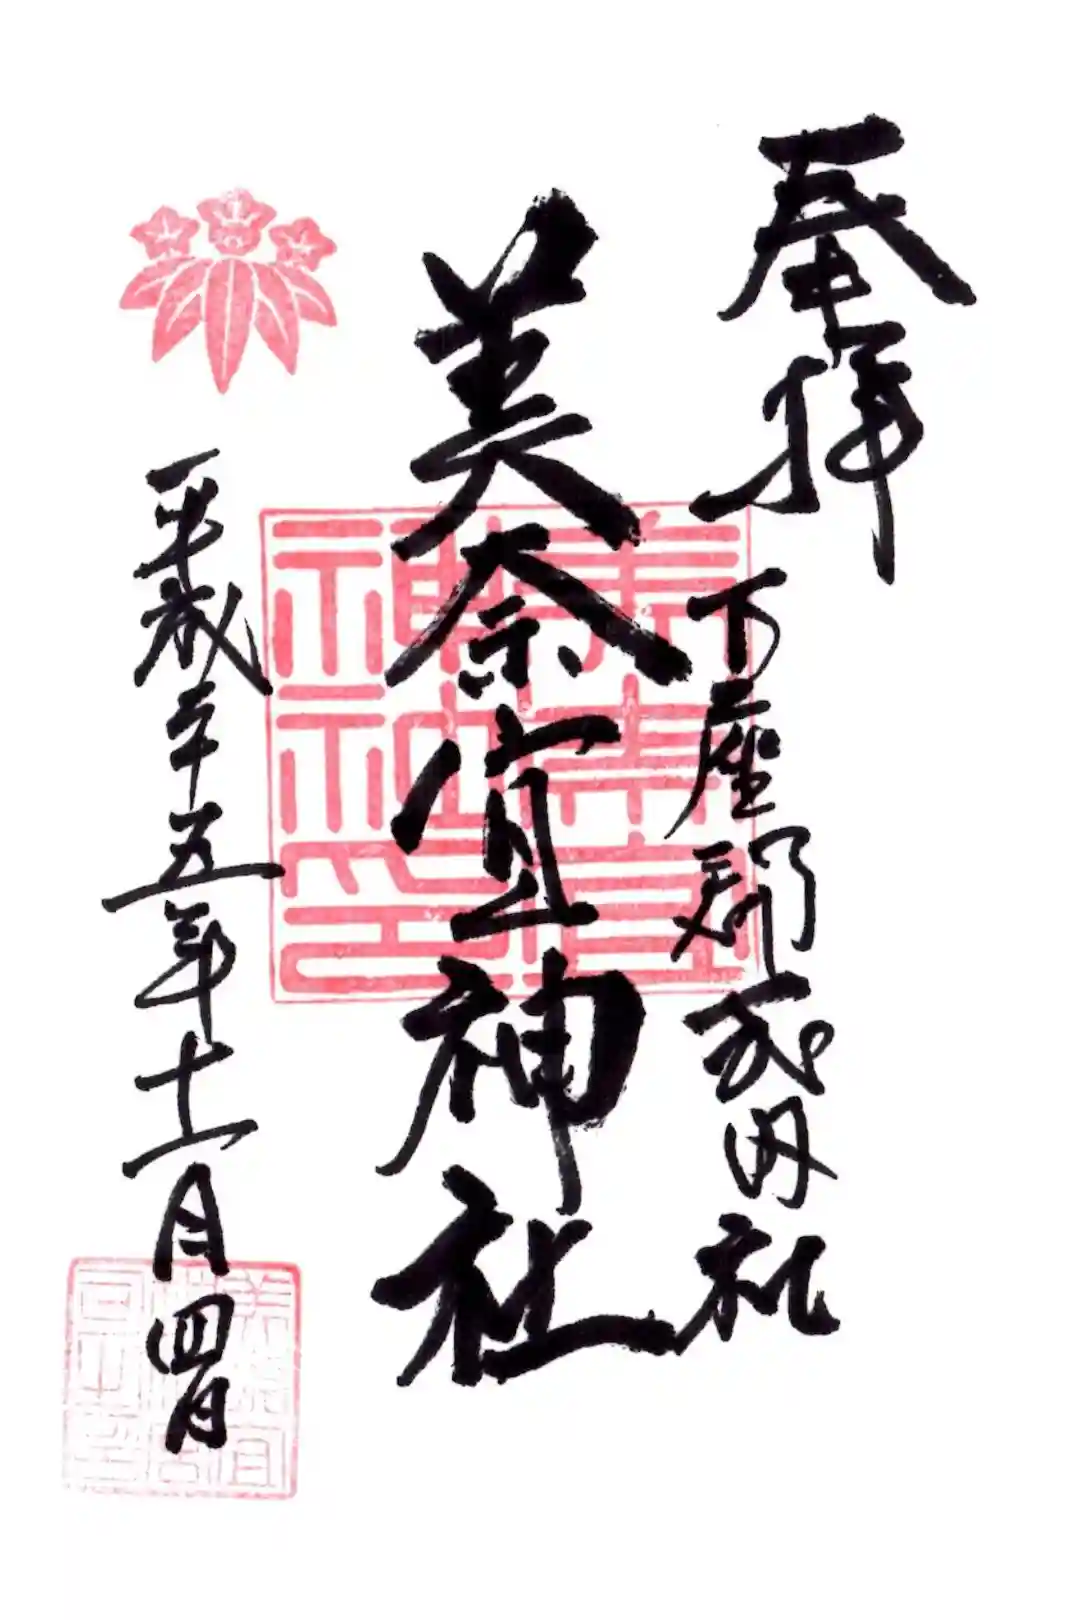 奉拝
下座郡式内社
美奈宜神社
平成二十五年十一月四日
美奈宜神社印